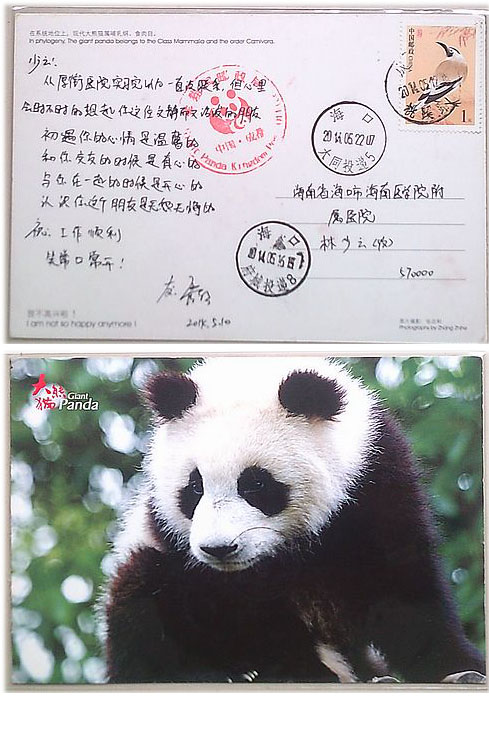 在系统地位上，现代大熊猫属哺乳纲，食肉目。
In phylogeny, The giant panda belongs to the Class Mammalia and the order Carnivora.
少云：
从厚街医院实习以后一直没联系，但心里
会时不时的想起你这位文静而又活泼的朋友
初遇你的心情是温馨的
和你交友的时候是真心的
与你在一起的时候是开心的
认识你这个朋友是无怨无悔的
祝：工作顺利
笑常口常开！
友：
2014.5.10
我不高兴啦！
I am not so happy anymore !
Panda Kingdom
中国·成都
中国邮政
CHINA
1元
2014.05.12
海口
2014.05.22.07
大同投递5
海口
2014.05.15
投递8
海南省海口市海南医学院附
属医院
林少云(收)
570000
Photography by Zhang Zhihe
大熊猫
Giant
Panda